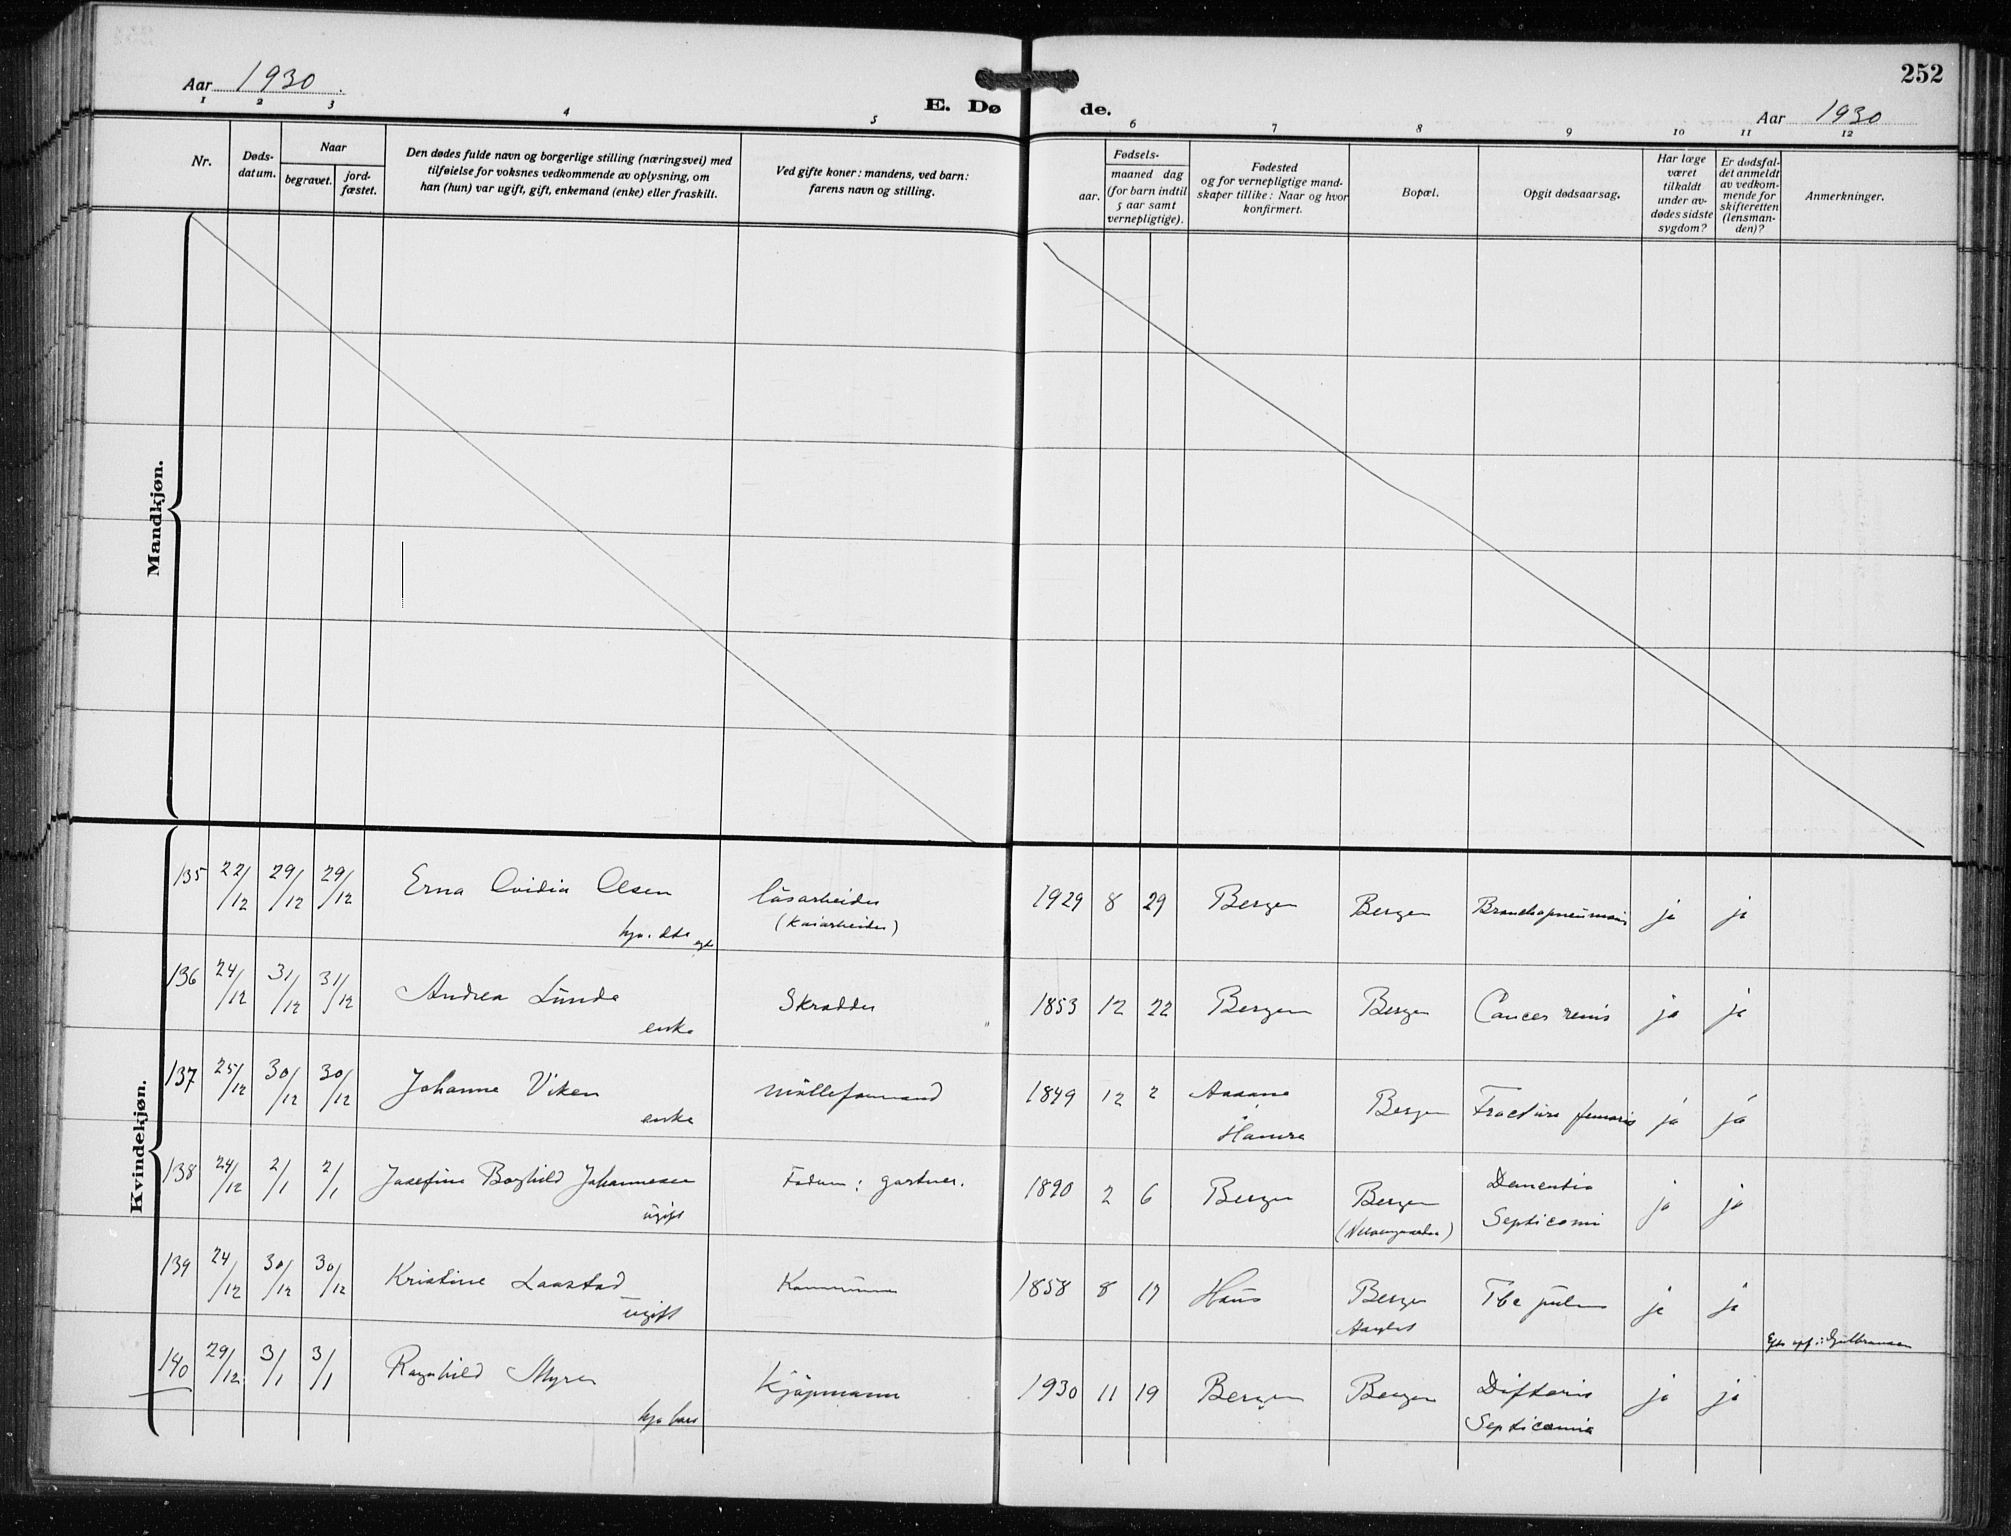 252
Aar 1930.
E. Døde.
Aar 1930
1 2 3 4 5 6 7 8 9 10 11 12
Nr.
Dødsdatum.
Naar
begravet.
jordfæstet.
Den dødes fulde navn og borgerlige stilling (næringsvei) med
tilføielse for voksnes vedkommende av oplysning, om
han (hun) var ugift, gift, enkemand (enke) eller fraskilt.
Ved gifte koner: mandens, ved barn:
farens navn og stilling.
Fødsels-
aar.
maaned dag
(for barn indtil
5 aar samt
vernepligtige).
Fødested
og for vernepligtige mand-
skaper tillike: Naar og hvor
konfirmert.
Bopæl.
Opgit dødsaarsag.
Har læge
været
tilkaldt
under av-
dødes sidste
sygdom?
Er dødsfal-
det anmeldt
av vedkom-
mende for
skifteretten
(lensman-
den)?
Anmerkninger.
Mandkjøn.
Kvindekjøn.
135 22/12 29/12 29/12 Erna Ovidia Olsen løsarbeider 1929 8 29 Bergen Bergen Bronchopneumoni ja ja
(Kaiarbeider)
136 24/12 31/12 31/12 Andrea Lunde Skrædder 1853 12 22 Bergen Bergen Cancer renis ja ja
enke
137 25/12 30/12 30/12 Johanne Viken Mølleformand 1849 12 2 Aasane Bergen Fractura femoris ja ja
enke Hamre
138 24/12 2/1 2/1 Josefine Borghild Johannesen Fadern: gartner. 1890 2 6 Bergen Bergen Dementia ja ja
ugift (Neevengaarden) Septicæmi
139 24/12 30/12 30/12 Kristine Laastad Kommune 1858 8 17 Haus Bergen Tbc pulm ja ja
ugift
140 29/12 3/1 3/1 Ragnhild Myren Kjøpmann 1930 11 19 Bergen Bergen Difteri ja ja
Septicæmia